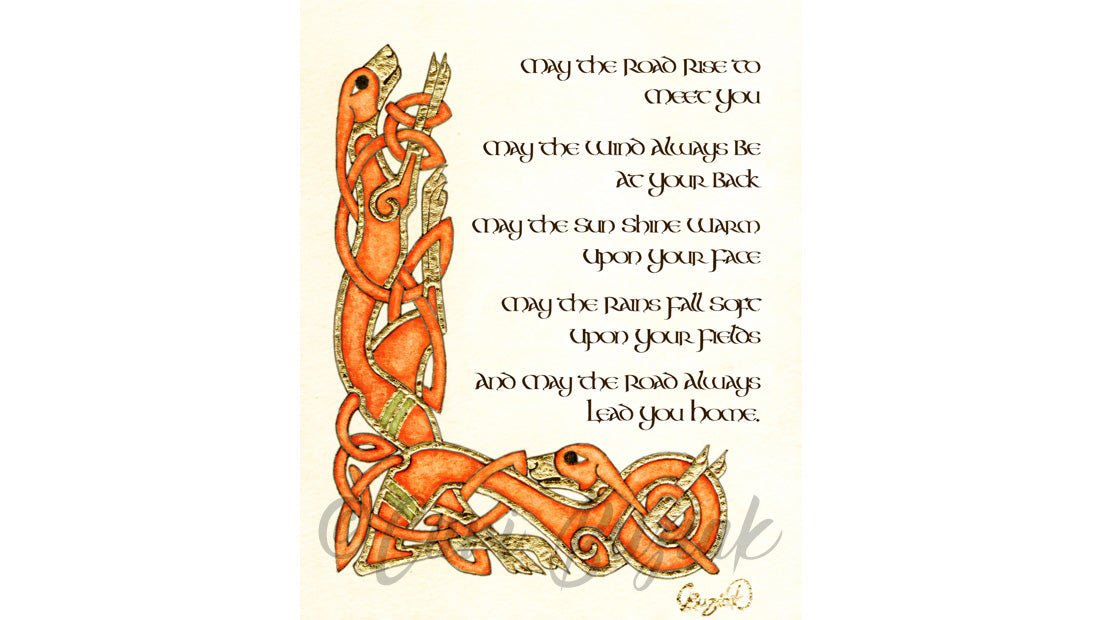 May the Road Rise to
Meet You
May the Wind Always Be
at Your Back
May the Sun Shine Warm
Upon Your Face
May the Rains Fall Soft
Upon Your Fields
And May the Road Always
Lead You Home.
©